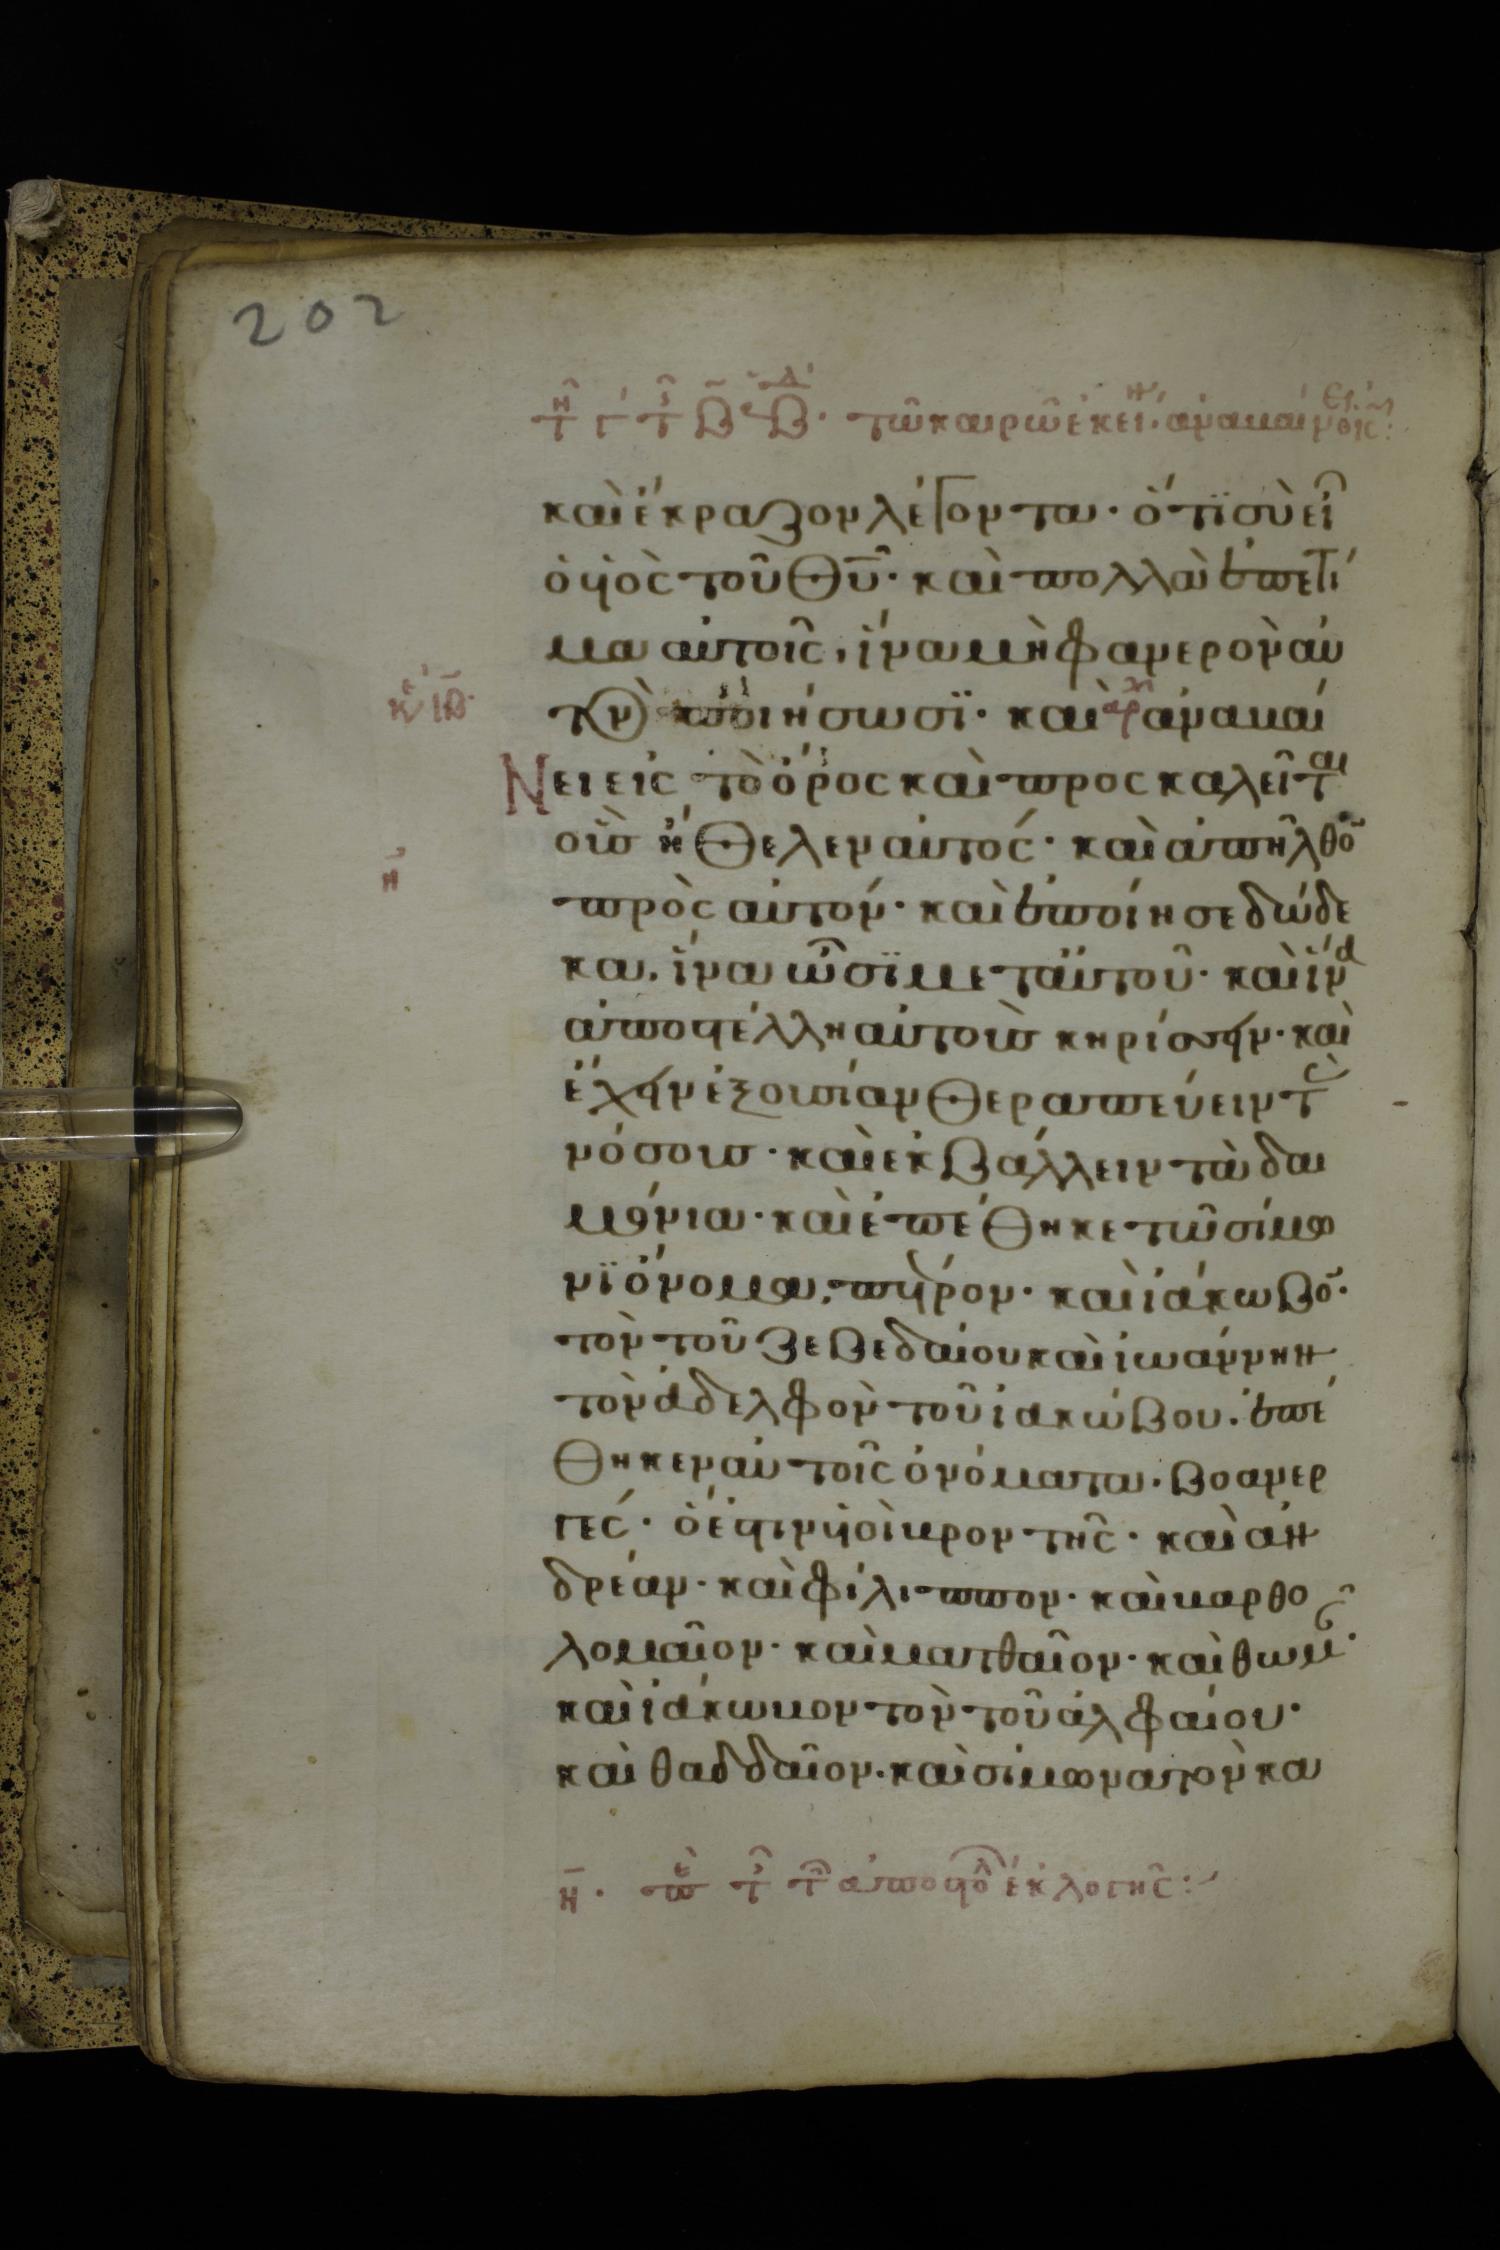 202
τῆ γ τῆς β ἑβδ. τῶ καιρῶ ἐκείν. ἀναβαίν ὁ ἰς:
καὶ ἔκραζον λέγοντα· ὅτϊ σὺ εἶ
ὁ υἱὸς τοῦ θυ̅· καὶ πολλὰ ἐπετί
μα αὐτοῖς, ἵνα μὴ φανερὸν αὐ
τὸν ποιήσωσϊ· καὶ ἀρχ ἀναβαί
κε ιβ·
Νει εἰς τὸ ὄρος καὶ προσκαλεῖται
οὓσ ἤθελεν αὐτός· καὶ ἀπῆλθο̅
η
πρὸς αὐτόν· καὶ ἐποίησε δώδε
κα. ἵνα ὦσϊ μετ αὐτοῦ· καὶ ἵνα
ἀποστέλλη αὐτοὺσ κηρίσσειν· καὶ
ἔχειν ἐξουσίαν θεραπεύειν τὰς
νόσουσ· καὶ ἐκβάλλειν τὰ δαι
μόνια· καὶ ἐπέθηκε τῶ σίμω
νϊ ὄνομα, πέτρον· καὶ ἰάκωβο̅·
τὸν τοῦ ζεβεδαίου καὶ ἰωάννην
τὸν ἀδελφὸν τοῦ ἰακώβου. ἐπέ
θηκεν αὐτοῖς ὀνόματα. βοανερ
γές· ὅ ἐστιν υἱοὶ βροντῆς· καὶ ἀν
δρέαν· καὶ φίλιππον· καὶ βαρθο
λομαῖον· καὶ ματθαῖον· καὶ θωμᾶν·
καὶ ἰάκωβον τὸν τοῦ ἀλφαίου·
καὶ θαδδαῖον. καὶ σίμωνα τὸν κα
η̅· πε τῆς τῶν ἀποστόλ ἐκλογῆς: